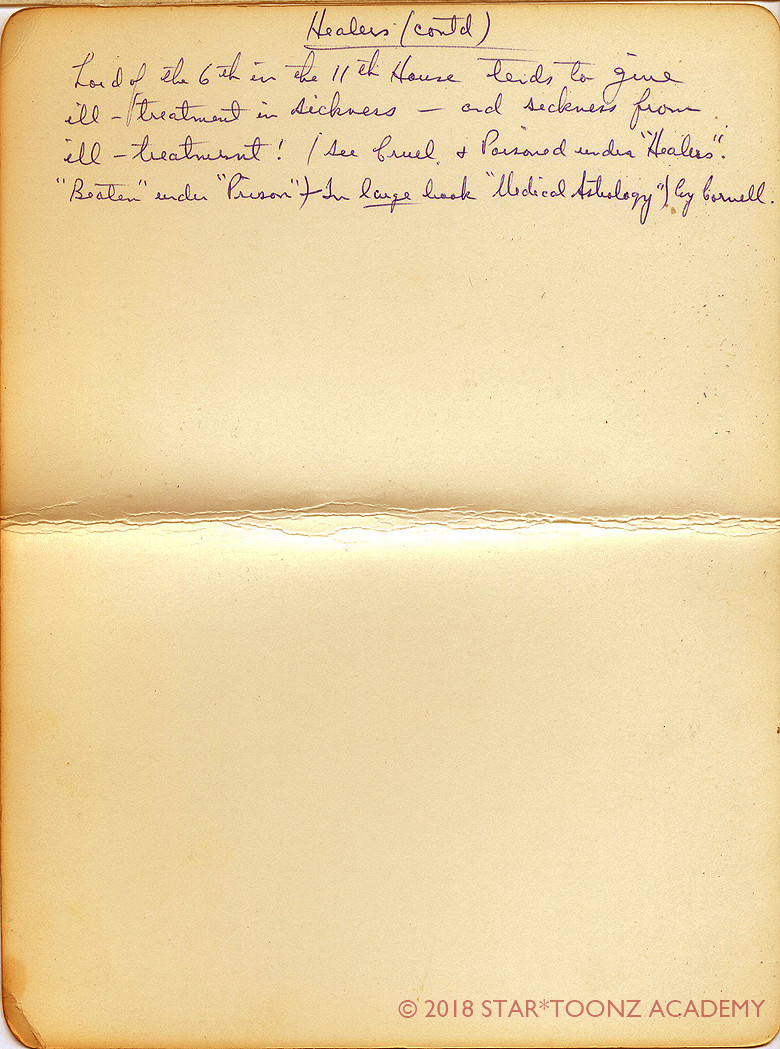 Healers (contd)
Lord of the 6th in the 11th House tends to give
ill-treatment in sickness – and sickness from
ill-treatment! (see Cruel, & Poisoned under "Healers".
"Beaten" under "Prison") – In large book "Medical Astrology") by Cornell.
© 2018 STAR*TOONZ ACADEMY